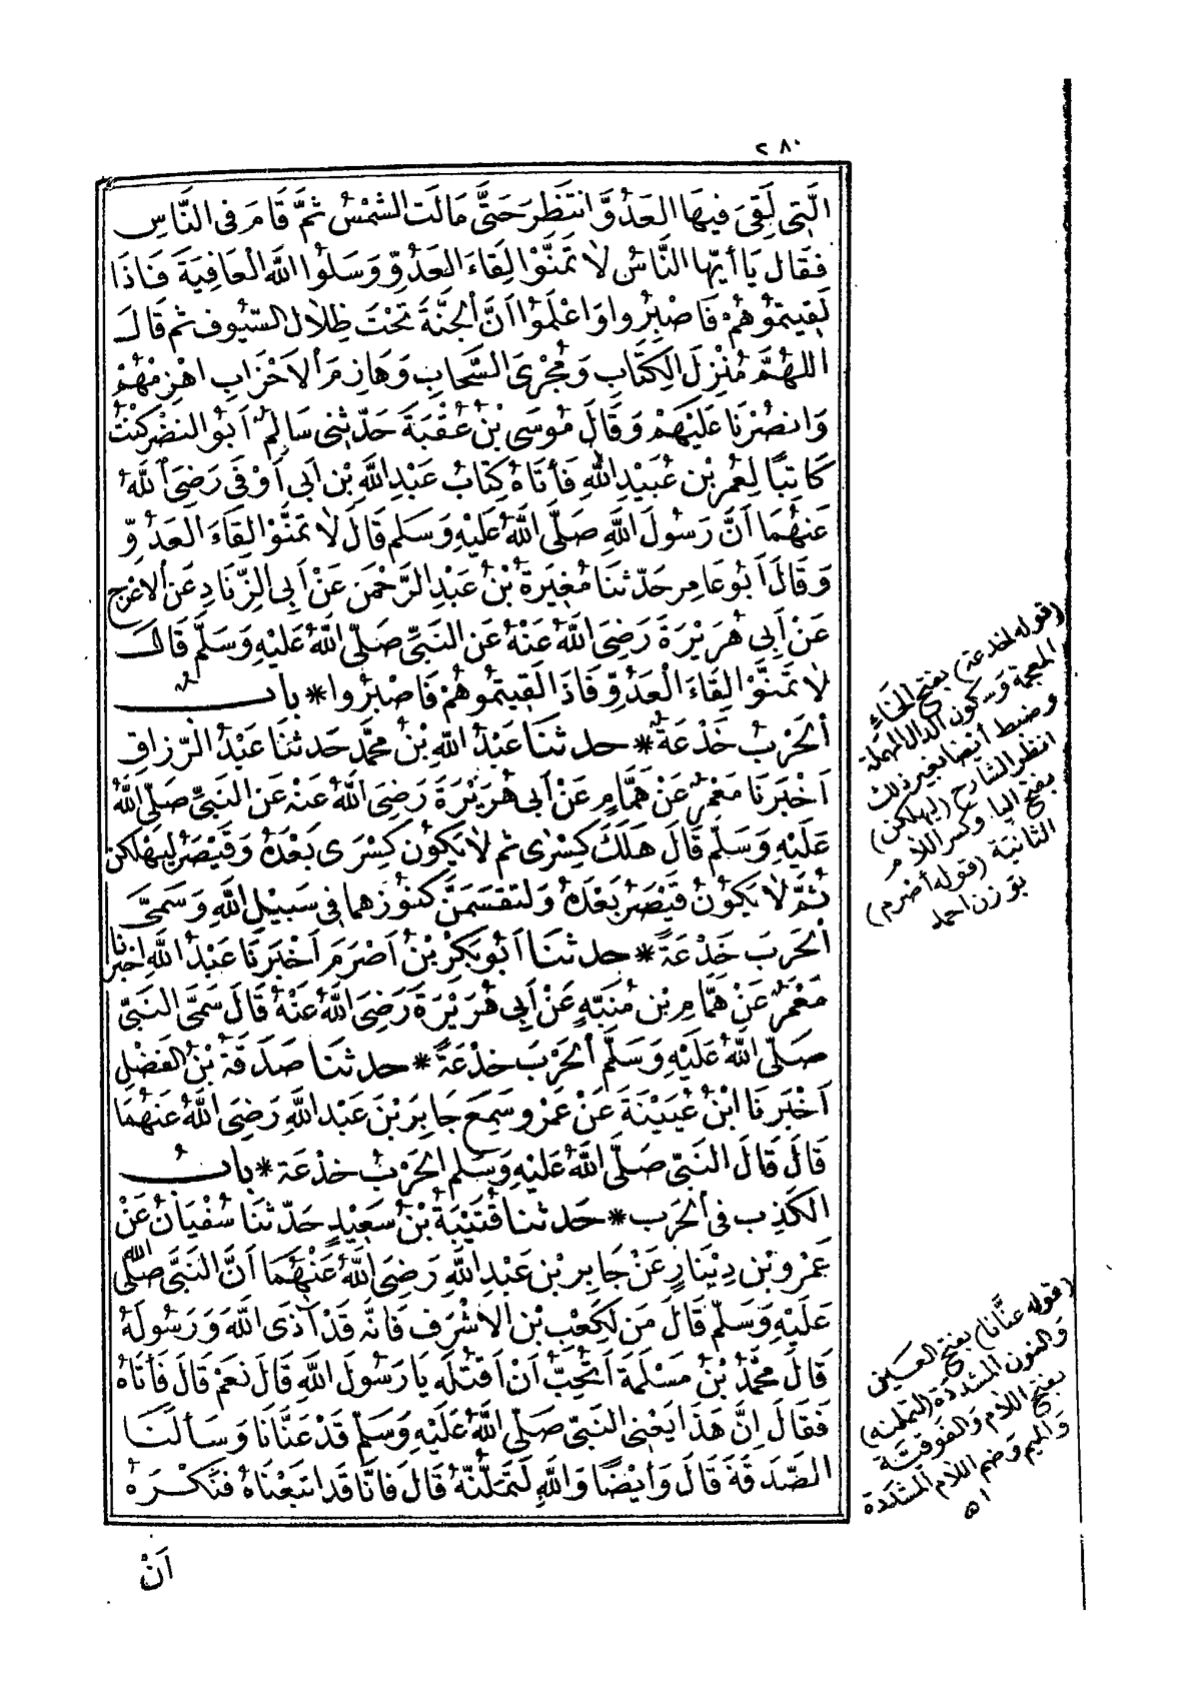 ٢٨٠
الَّتِي لَقِيَ فِيهَا العَدُوَّ انْتَظَرَ حَتَّى مَالَت الشَّمْسُ ثُمَّ قَامَ فِى النَّاسِ
فَقَال يَا أَيُّهَا النَّاسُ لاَ تَمَنَّوْا لِقَاءَ العَدُوِّ وَسَلُوا اللَّهَ الْعَافِيَةَ فَاذَا
لَقِيتُمُوهُمْ فَاصْبِرُوا وَاعْلَمُوا اَنَّ الْجَنَّةَ تَحْتَ ظِلاَل السُّيُوف ثم قَالَ
اللهُمَّ مُنْزِلَ الكِتَابِ وَمُجْرِىَ السَّحَابِ وَهَازِمَ الاَحْزَابِ اهْزِمْهُمْ
وَانصُرْنَا عَلَيْهِمْ وَقَالَ مُوسَى بْنُ عُقْبَةَ حَدّثنِى سَالِمٌ اَبُو النضْر كُنْتُ
كَاتِبًا لِعُمر بْنِ عُبَيْدِ اللَّهِ فَأتَاهُ كِتَابُ عَبْدِ اللَّهِ بْنِ اَبِى اَوْفَى رَضِىَ اللَّهُ
عَنهُمَا اَنَّ رَسُولَ اللَّهِ صَلَّى اللَّهُ عَلَيْهِ وَسَلم قَالَ لاَ تَمَنَّوْا لِقَاءَ العَدُوِّ
وَقَالَ اَبُو عَامِر حَدّثنَا مُغِيرَةُ بْنُ عَبْدِ الرَّحْمٰن عَنْ اَبِى الزِّنَادِ عَن الاَعْرَج
عَنْ اَبِي هُرَيْرَةَ رَضِىَ اللَّهُ عَنْهُ عَن النَّبِىِّ صَلَّى اللَّهُ عَلَيْهِ وَسَلَّم قَالَ
لاَ تَمَنَّوْا لِقَاءَ العَدُوِّ فَاذَا لَقِيتُمُوهُمْ فَاصْبِرُوا * بابٌ
اَلْحَرْبُ خَدْعَةٌ * حدثنَا عَبْدُ اللَّهِ بْنُ مُحمَّد حَدثنَا عَبْدُ الرَّزاقِ
اَخْبَرَنَا مَعْمَرٌ عَنْ هَمَّامٍ عَنْ اَبِى هُرَيْرَةَ رَضِىَ اللَّهُ عَنه عَن النَّبِىِّ صَلَّى اللَّهُ
عَلَيْهِ وَسَلَّم قَالَ هَلَكَ كِسْرٰى ثم لاَ يَكُونُ كِسْرَى بَعْدَهُ وَقَيْصَرٌ لَيَهْلِكن
ثُمَّ لاَ يَكُوْنُ قَيْصَرٌ بَعْدَهُ وَلَتقْسَمَنَّ كُنُوْزهما فِى سَبِيْلِ اللَّهِ وَسَمىَّ
اَلْحَرَبَ خَدْعَةً * حدثنَا اَبُو بَكْرِ بْنُ اَصْرَمَ اَخْبَرَنَا عَبْدُ اللَّهِ اخبرنا
مَعْمَرٌ عَنْ هَمَّامِ بْنِ مُنَبِّهٍ عَنْ اَبِي هُرَيْرَةَ رَضِىَ اللَّهُ عَنْهُ قَالَ سَمَّى النَّبِىّ
صَلَّى اللَّهُ عَلَيْهِ وَسَلَّم اَلْحَرْبَ خدْعَةً * حدثنَا صَدَقَةُ بْنُ الفَضْلِ
اَخْبَرَنَا ابْنُ عُيَيْنَةَ عَنْ عَمْرٍو سَمِعَ جَابِرَ بْنَ عَبْد اللَّهِ رَضِىَ اللَّهُ عَنهُمَا
قَالَ قَالَ النَّبِىّ صَلَّى اللَّهُ عَلَيْهِ وَسَلم الْحَرْبُ خدْعَة * بابُ
الكَذِبِ فِى الْحَرب * حَدثنا قُتَيْبَةُ بْنُ سَعِيْدٍ حَدّثنَا سُفْيَانُ عَنْ
عَمْرِو بْنِ دِيْنَارٍ عَنْ جَابِر بْنِ عَبْدِ اللَّهِ رَضِىَ اللَّهُ عَنْهُمَا اَنَّ النَّبَّى صَلَّى اللَّه
عَلَيْهِ وَسَلَّم قَالَ مَن لِكَعْبِ بْنِ الاَشْرَف فَانَّه قَدْ آذَى اللَّهَ وَرَسُولَهُ
قَالَ مُحمَّدُ بْنُ مَسْلَمَةَ اَتُحِبُّ اَنْ اَقْتُلَه يَا رَسُولَ اللَّهِ قَالَ نَعَمْ قَالَ فَأتَاهُ
فَقَالَ اِنَّ هَذَا يَعْنِى النَّبِىّ صَلَّى اللَّهُ عَلَيْهِ وَسَلَّم قَدْ عَنَّانَا وَسَألَنَا
الصَّدَقَةَ قَالَ وَأيْضًا وَاللَّهِ لَتَمَلُّنَّهُ قَالَ فَانَّا قَدِ اتبَعْنَاهُ فنَكْرَهُ
اَنْ
(قوله خدعة) بفتح الخاءِ
المعجمة وَسكون الدال المهملة
وضبط أيضا بغير ذلك
انظر الشارح (ليهلكن)
بفتح اليا وكسر اللام
الثانية (قوله أصرم)
بوزن احمد
(قوله عنَّانا) بفتح العين
وَالنون المشددة (لتملنه)
بفتح اللام وَالفوقيَّة
وَالميم وَضم اللام المشددة
اه